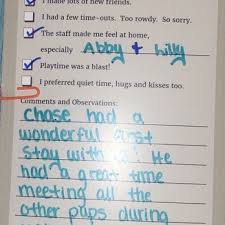 I made lots of new friends.
I had a few time-outs. Too rowdy. So sorry.
The staff made me feel at home,
especially Abby + Willy
Playtime was a blast!
I preferred quiet time, hugs and kisses too.
Comments and Observations:
Chase had a
wonderful first
stay with us! He
had a great time
meeting all the
other pups during